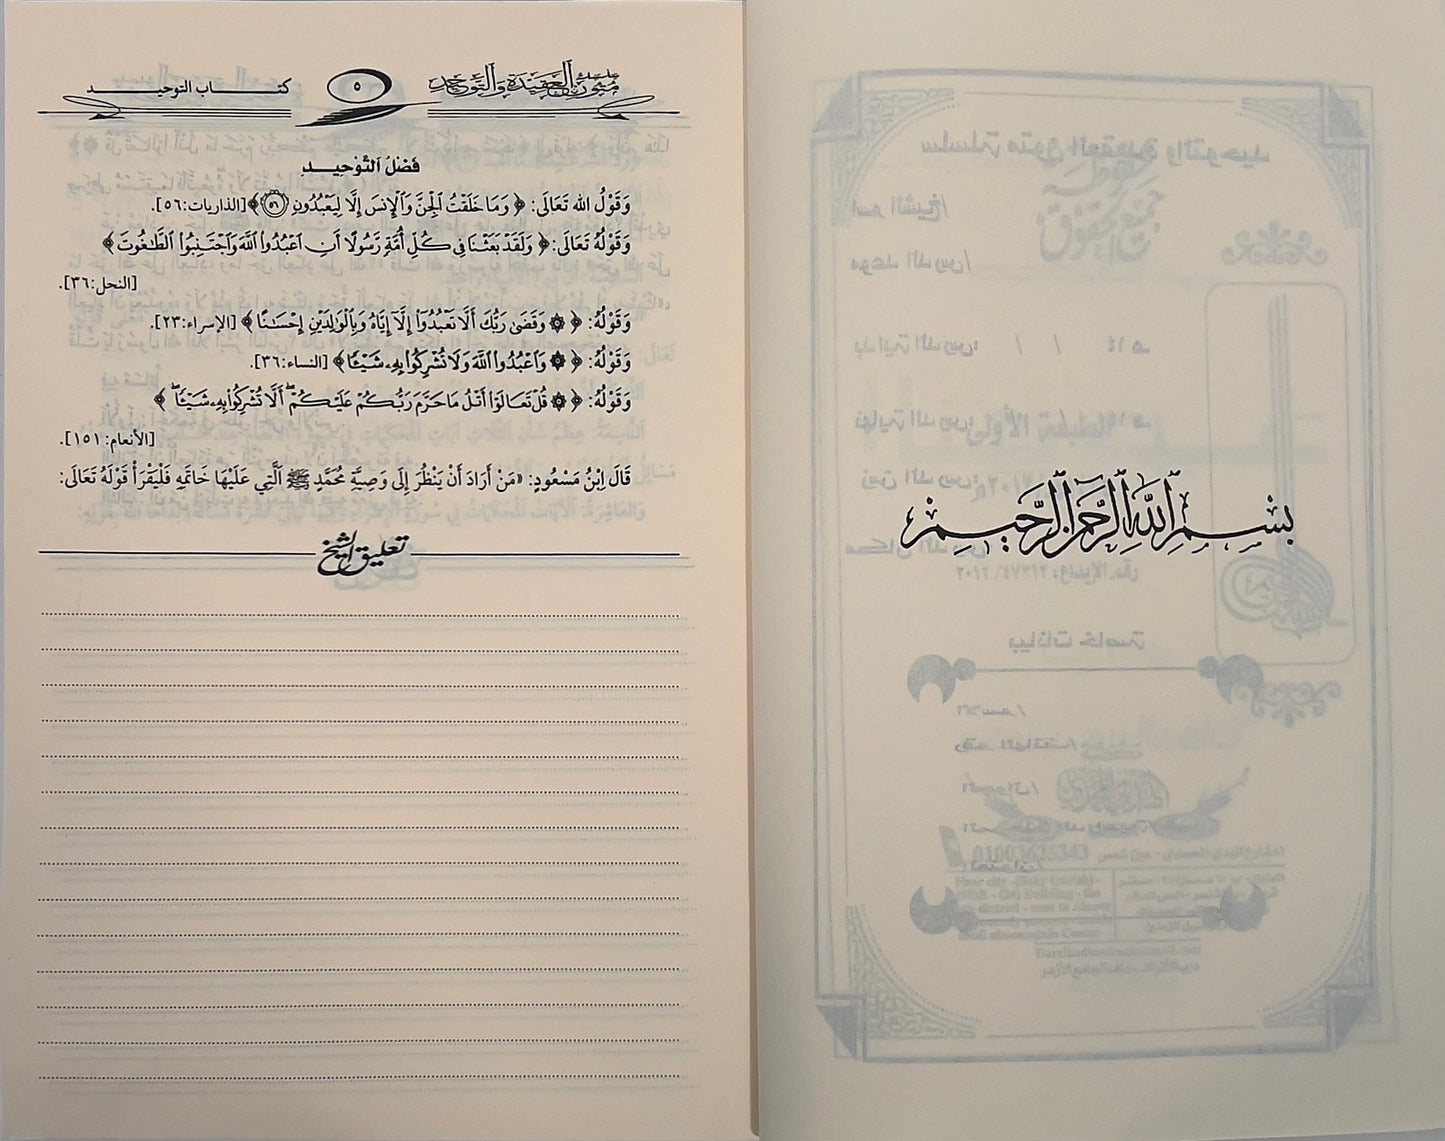 بِسْمِ اللَّهِ الرَّحْمَٰنِ الرَّحِيمِ
سلسلة متون العقيدة والتوحيد
٥
كتاب التوحيد
فَضْلُ التَّوْحِيدِ
وَقَوْلُ الله تَعَالَى: ﴿ وَمَا خَلَقْتُ ٱلْجِنَّ وَٱلْإِنسَ إِلَّا لِيَعْبُدُونِ ٥٦ ﴾ [الذاريات:٥٦].
وَقَوْلُهُ تَعَالَى: ﴿ وَلَقَدْ بَعَثْنَا فِي كُلِّ أُمَّةٍ رَّسُولًا أَنِ ٱعْبُدُوا۟ ٱللَّهَ وَٱجْتَنِبُوا۟ ٱلطَّٰغُوتَ ﴾
[النحل:٣٦].
وَقَوْلُهُ: ﴿ ۞ وَقَضَىٰ رَبُّكَ أَلَّا تَعْبُدُوٓا۟ إِلَّآ إِيَّاهُ وَبِٱلْوَٰلِدَيْنِ إِحْسَٰنًا ﴾ [الإسراء:٢٣].
وَقَوْلُهُ: ﴿ ۞ وَٱعْبُدُوا۟ ٱللَّهَ وَلَا تُشْرِكُوا۟ بِهِۦ شَيْـًٔا ﴾ [النساء:٣٦].
وَقَوْلُهُ: ﴿ ۞ قُلْ تَعَالَوْا۟ أَتْلُ مَا حَرَّمَ رَبُّكُمْ عَلَيْكُمْ ۖ أَلَّا تُشْرِكُوا۟ بِهِۦ شَيْـًٔا ۖ ﴾
[الأنعام: ١٥١].
قَالَ ابْنُ مَسْعُودٍ: «مَنْ أَرَادَ أَنْ يَنْظُرَ إِلَى وَصِيَّةِ مُحَمَّدٍ ﷺ الَّتِي عَلَيْهَا خَاتَمُهِ فَلْيَقْرَأْ قَوْلَهُ تَعَالَى:
تعليق الشيخ